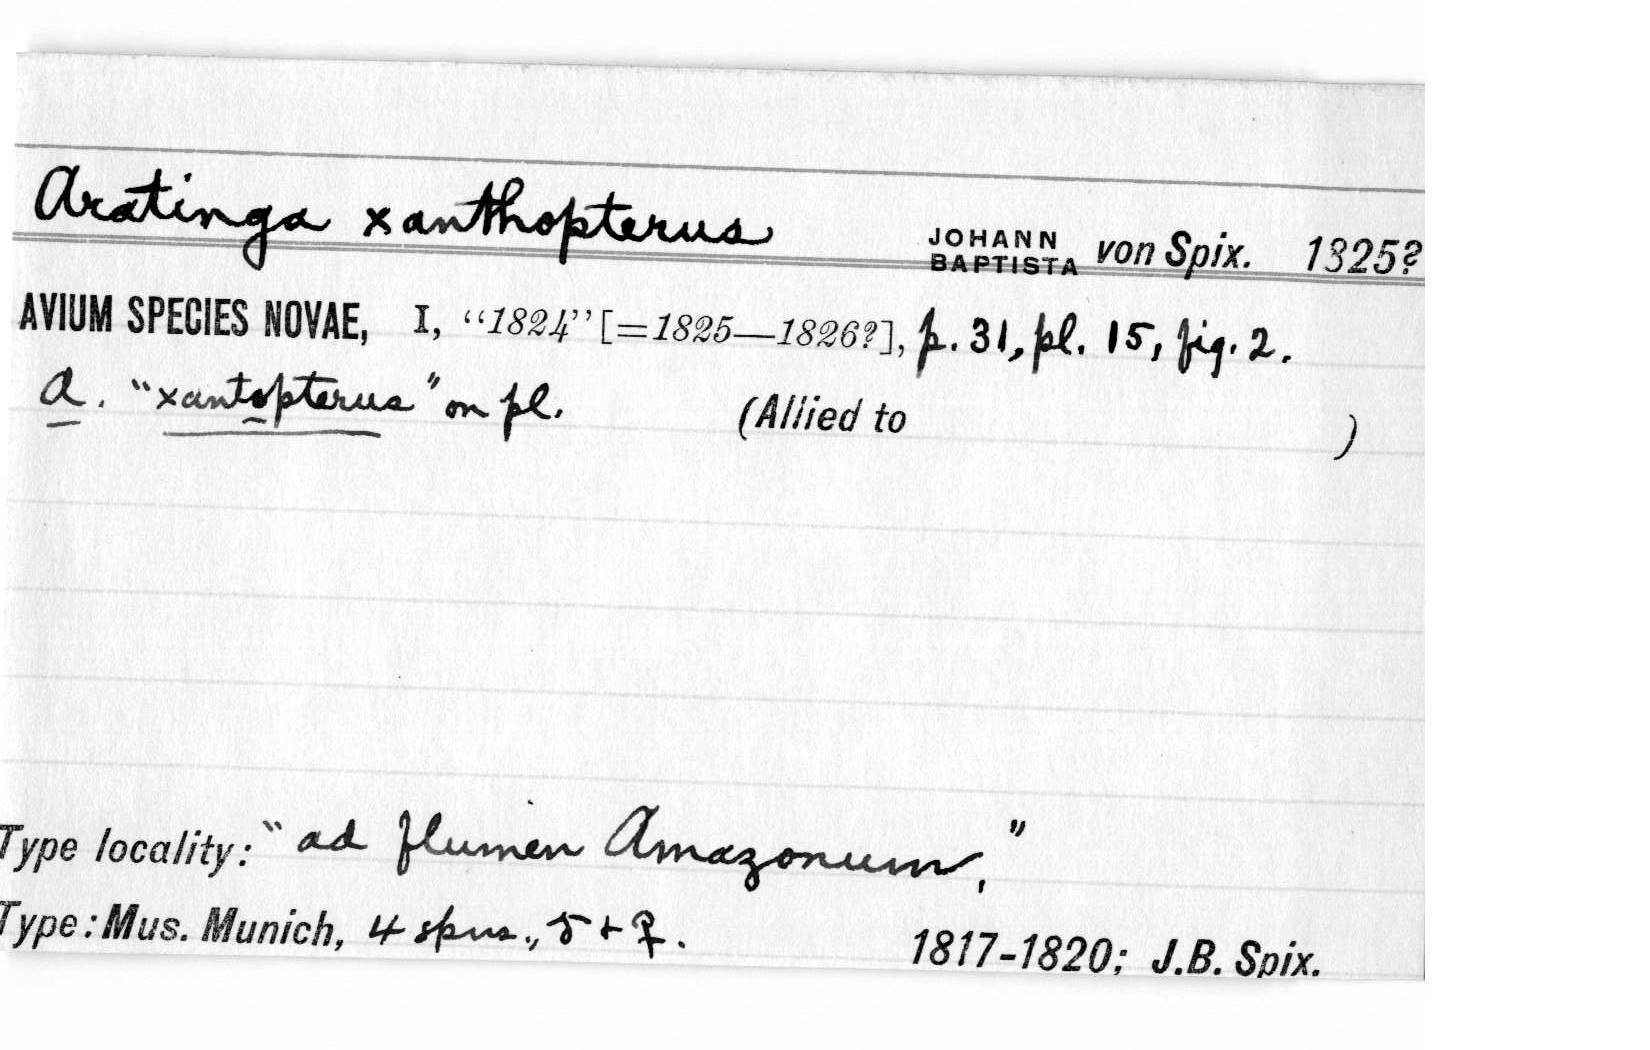 Aratinga xanthopterus JOHANN BAPTISTA von Spix. 1825?
AVIUM SPECIES NOVAE, I, “1824” [=1825—1826?], p. 31, pl. 15, fig. 2.
A. “xantopterus” on pl. (Allied to )
Type locality: “ad flumen Amazonum,”
Type: Mus. Munich, 4 spms., ♂ + ♀. 1817-1820; J.B. Spix.